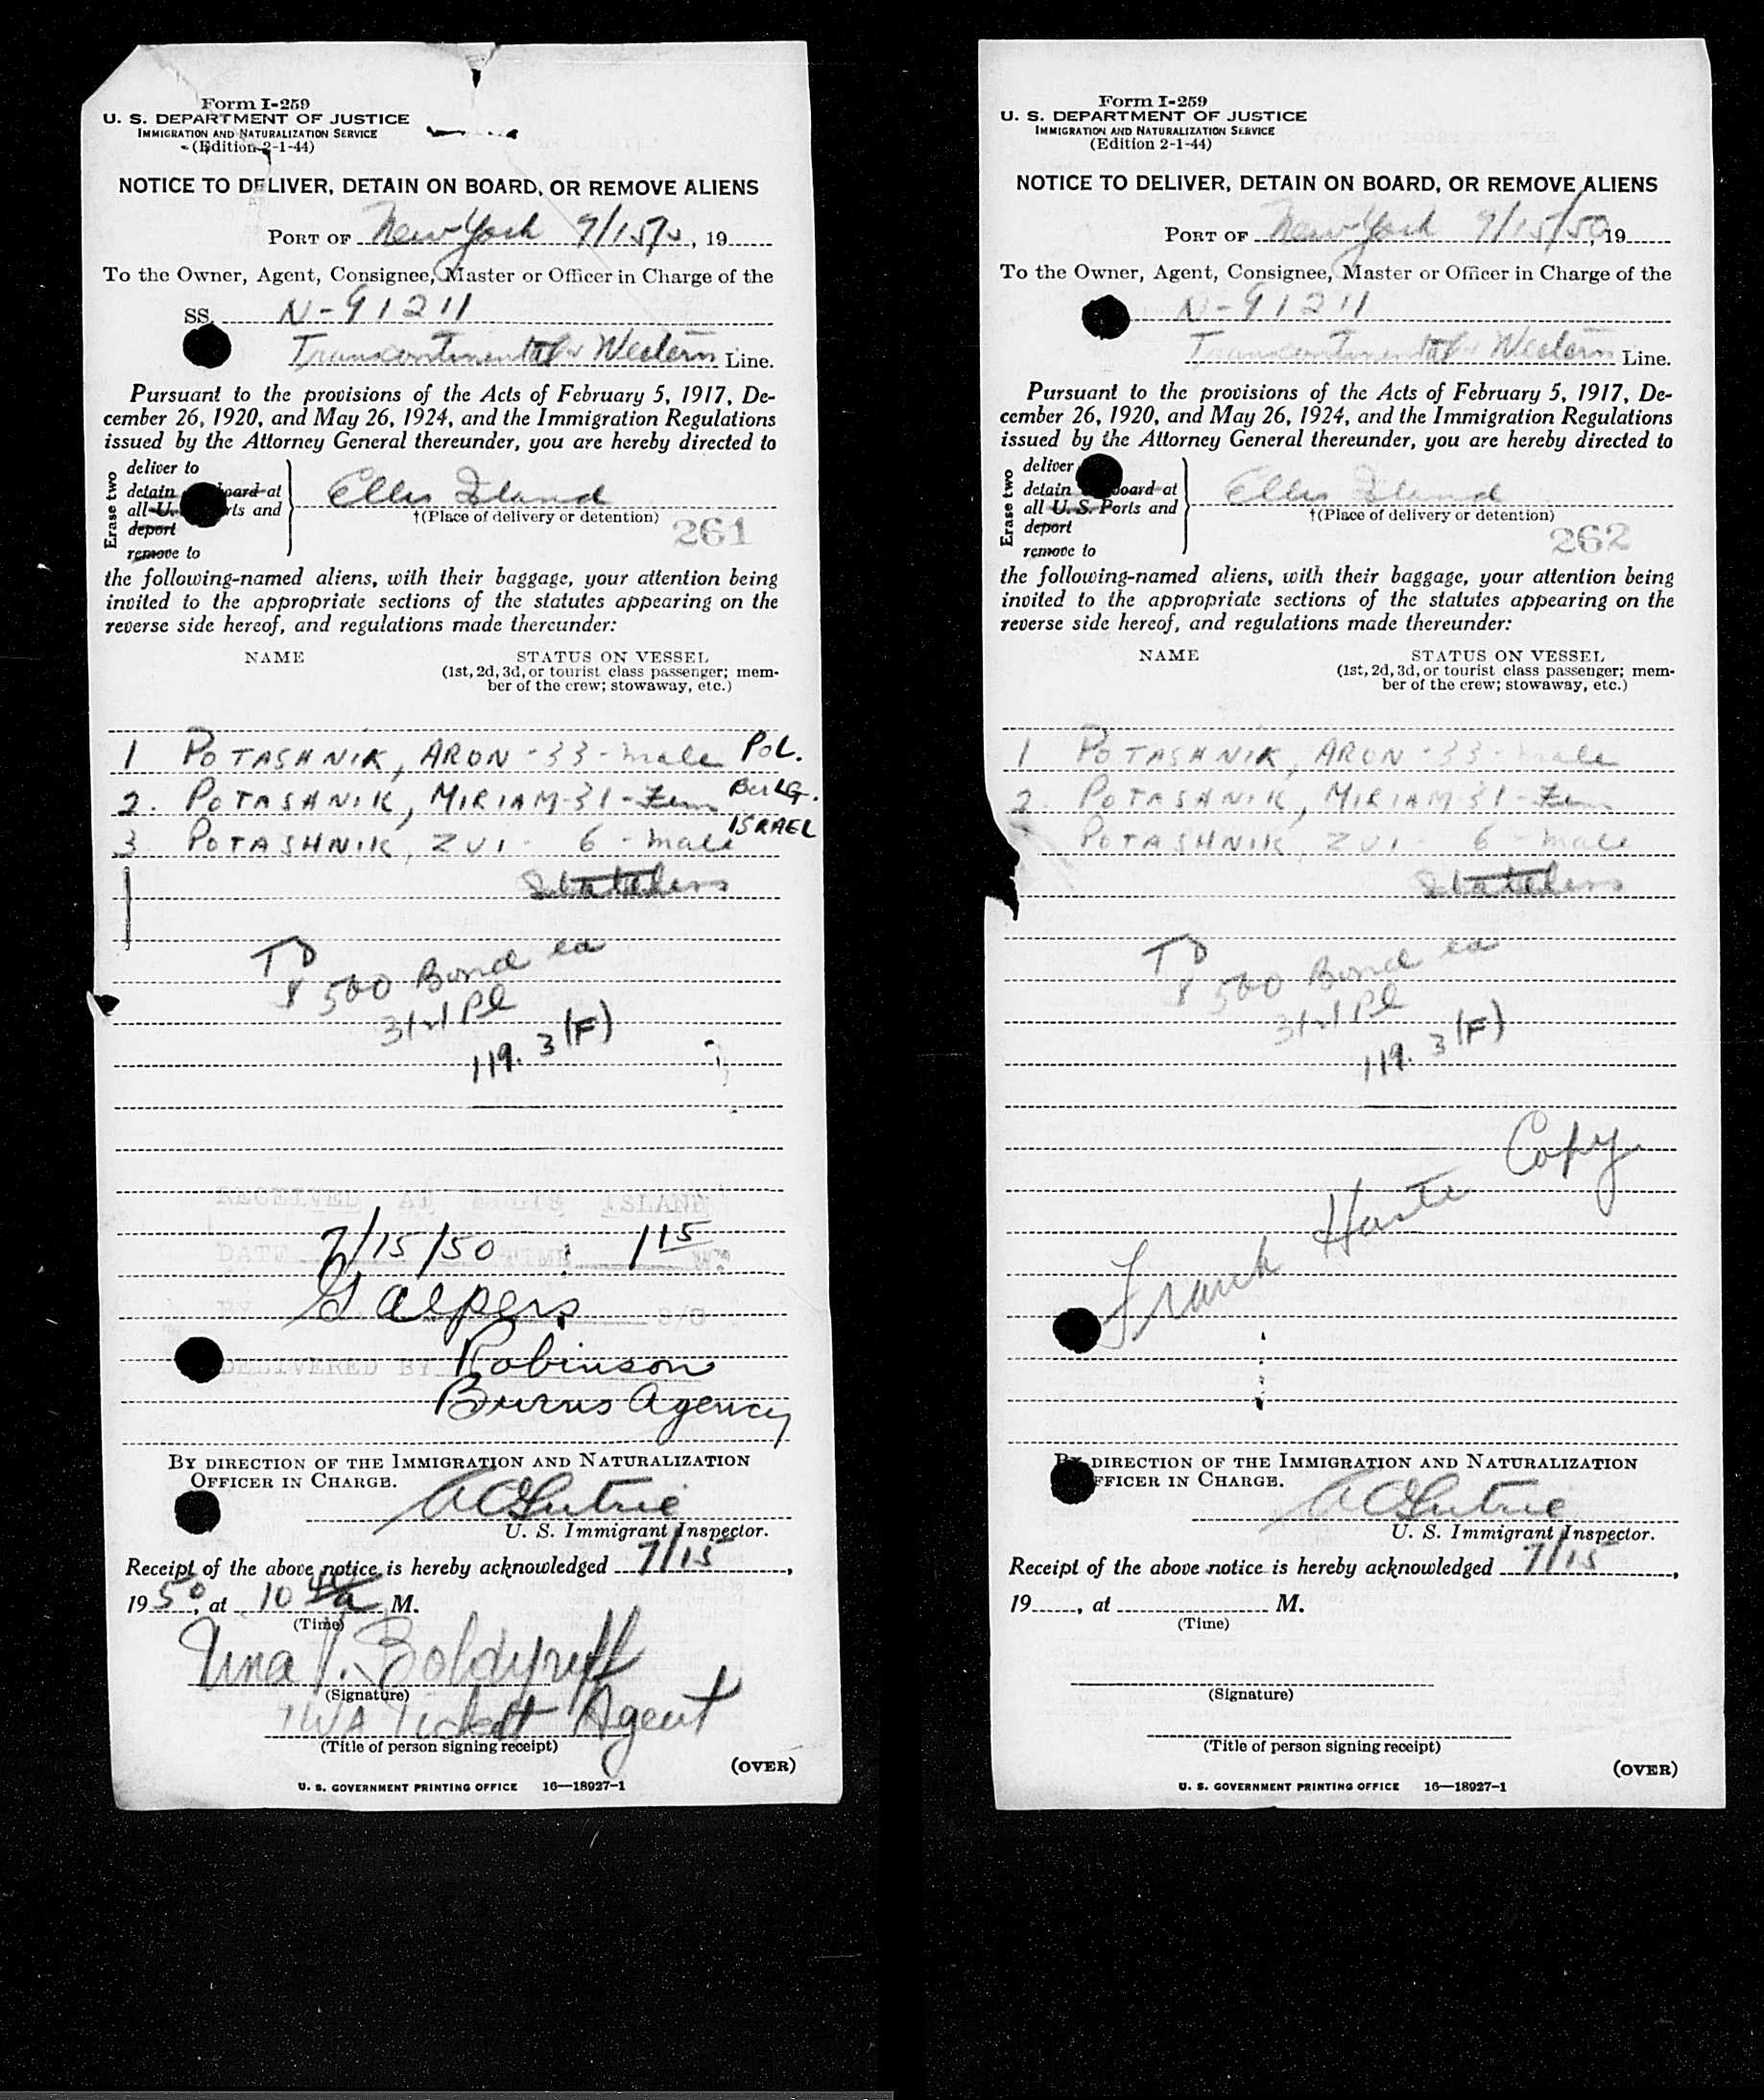 Form I-259
U. S. DEPARTMENT OF JUSTICE
IMMIGRATION AND NATURALIZATION SERVICE
(Edition 2-1-44)
NOTICE TO DELIVER, DETAIN ON BOARD, OR REMOVE ALIENS
PORT OF New York 7/15/5, 19
To the Owner, Agent, Consignee, Master or Officer in Charge of the
SS. N-91211
Transcontinental & Western Line.
Pursuant to the provisions of the Acts of February 5, 1917, De-
cember 26, 1920, and May 26, 1924, and the Immigration Regulations
issued by the Attorney General thereunder, you are hereby directed to
Erase two
deliver to
detain board at
all U. rts and
deport
remove to
Ellis Island
†(Place of delivery or detention)
261
the following-named aliens, with their baggage, your attention being
invited to the appropriate sections of the statutes appearing on the
reverse side hereof, and regulations made thereunder:
NAME STATUS ON VESSEL
(1st, 2d, 3d, or tourist class passenger; mem-
ber of the crew; stowaway, etc.)
1 POTASHNIK, ARON - 33 - male POL.
2. POTASHNIK, MIRIAM - 31 - Fem BULG.
3 POTASHNIK, ZVI - 6 - male ISRAEL
Stateless
TD
$500 Bond ea
3(2) PL
119. 3 (F)
RECEIVED AT ELLIS ISLAND
DATE 7/15/50 TIME 1 15 M.
BY Galpers
DELIVERED BY Robinson
Burns Agency
BY DIRECTION OF THE IMMIGRATION AND NATURALIZATION
OFFICER IN CHARGE.
U. S. Immigrant Inspector.
Receipt of the above notice is hereby acknowledged 7/15,
19 50, at 10 40 a M.
(Time)
Nina V. Boldyreff
(Signature)
TWA Ticket Agent
(Title of person signing receipt)
(OVER)
U. S. GOVERNMENT PRINTING OFFICE 16—18927-1
Form I-259
U. S. DEPARTMENT OF JUSTICE
IMMIGRATION AND NATURALIZATION SERVICE
(Edition 2-1-44)
NOTICE TO DELIVER, DETAIN ON BOARD, OR REMOVE ALIENS
PORT OF New York 7/15/50, 19
To the Owner, Agent, Consignee, Master or Officer in Charge of the
N-91211
Transcontinental & Western Line.
Pursuant to the provisions of the Acts of February 5, 1917, De-
cember 26, 1920, and May 26, 1924, and the Immigration Regulations
issued by the Attorney General thereunder, you are hereby directed to
Erase two
deliver
detain board at
all U. S. Ports and
deport
remove to
Ellis Island
†(Place of delivery or detention)
262
the following-named aliens, with their baggage, your attention being
invited to the appropriate sections of the statutes appearing on the
reverse side hereof, and regulations made thereunder:
NAME STATUS ON VESSEL
(1st, 2d, 3d, or tourist class passenger; mem-
ber of the crew; stowaway, etc.)
1 POTASHNIK, ARON - 33 - male
2. POTASHNIK, MIRIAM - 31 - Fem
POTASHNIK, ZVI - 6 - male
Stateless
TD
$500 Bond ea
3(2) PL
119. 3 (F)
Frank Haste Copy
BY DIRECTION OF THE IMMIGRATION AND NATURALIZATION
OFFICER IN CHARGE.
U. S. Immigrant Inspector.
Receipt of the above notice is hereby acknowledged 7/15,
19, at M.
(Time)
(Signature)
(Title of person signing receipt)
(OVER)
U. S. GOVERNMENT PRINTING OFFICE 16—18927-1